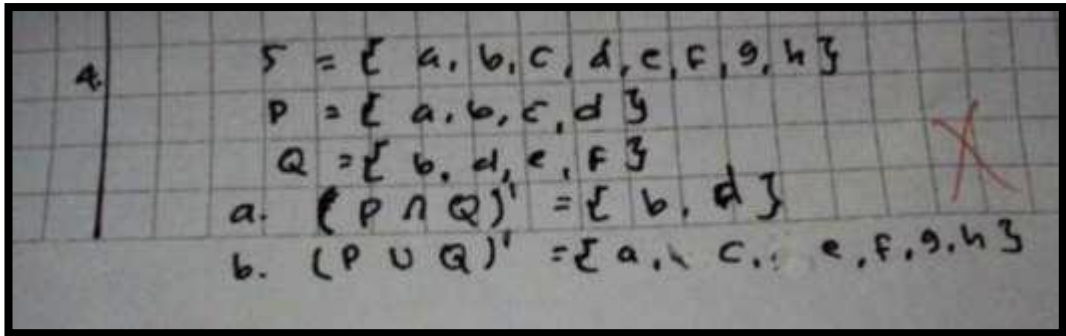 4. S = { a, b, c, d, e, f, g, h }
P = { a, b, c, d }
Q = { b, d, e, f }
a. (P ∩ Q)' = { b, d }
b. (P ∪ Q)' = { a, c, e, f, g, h }